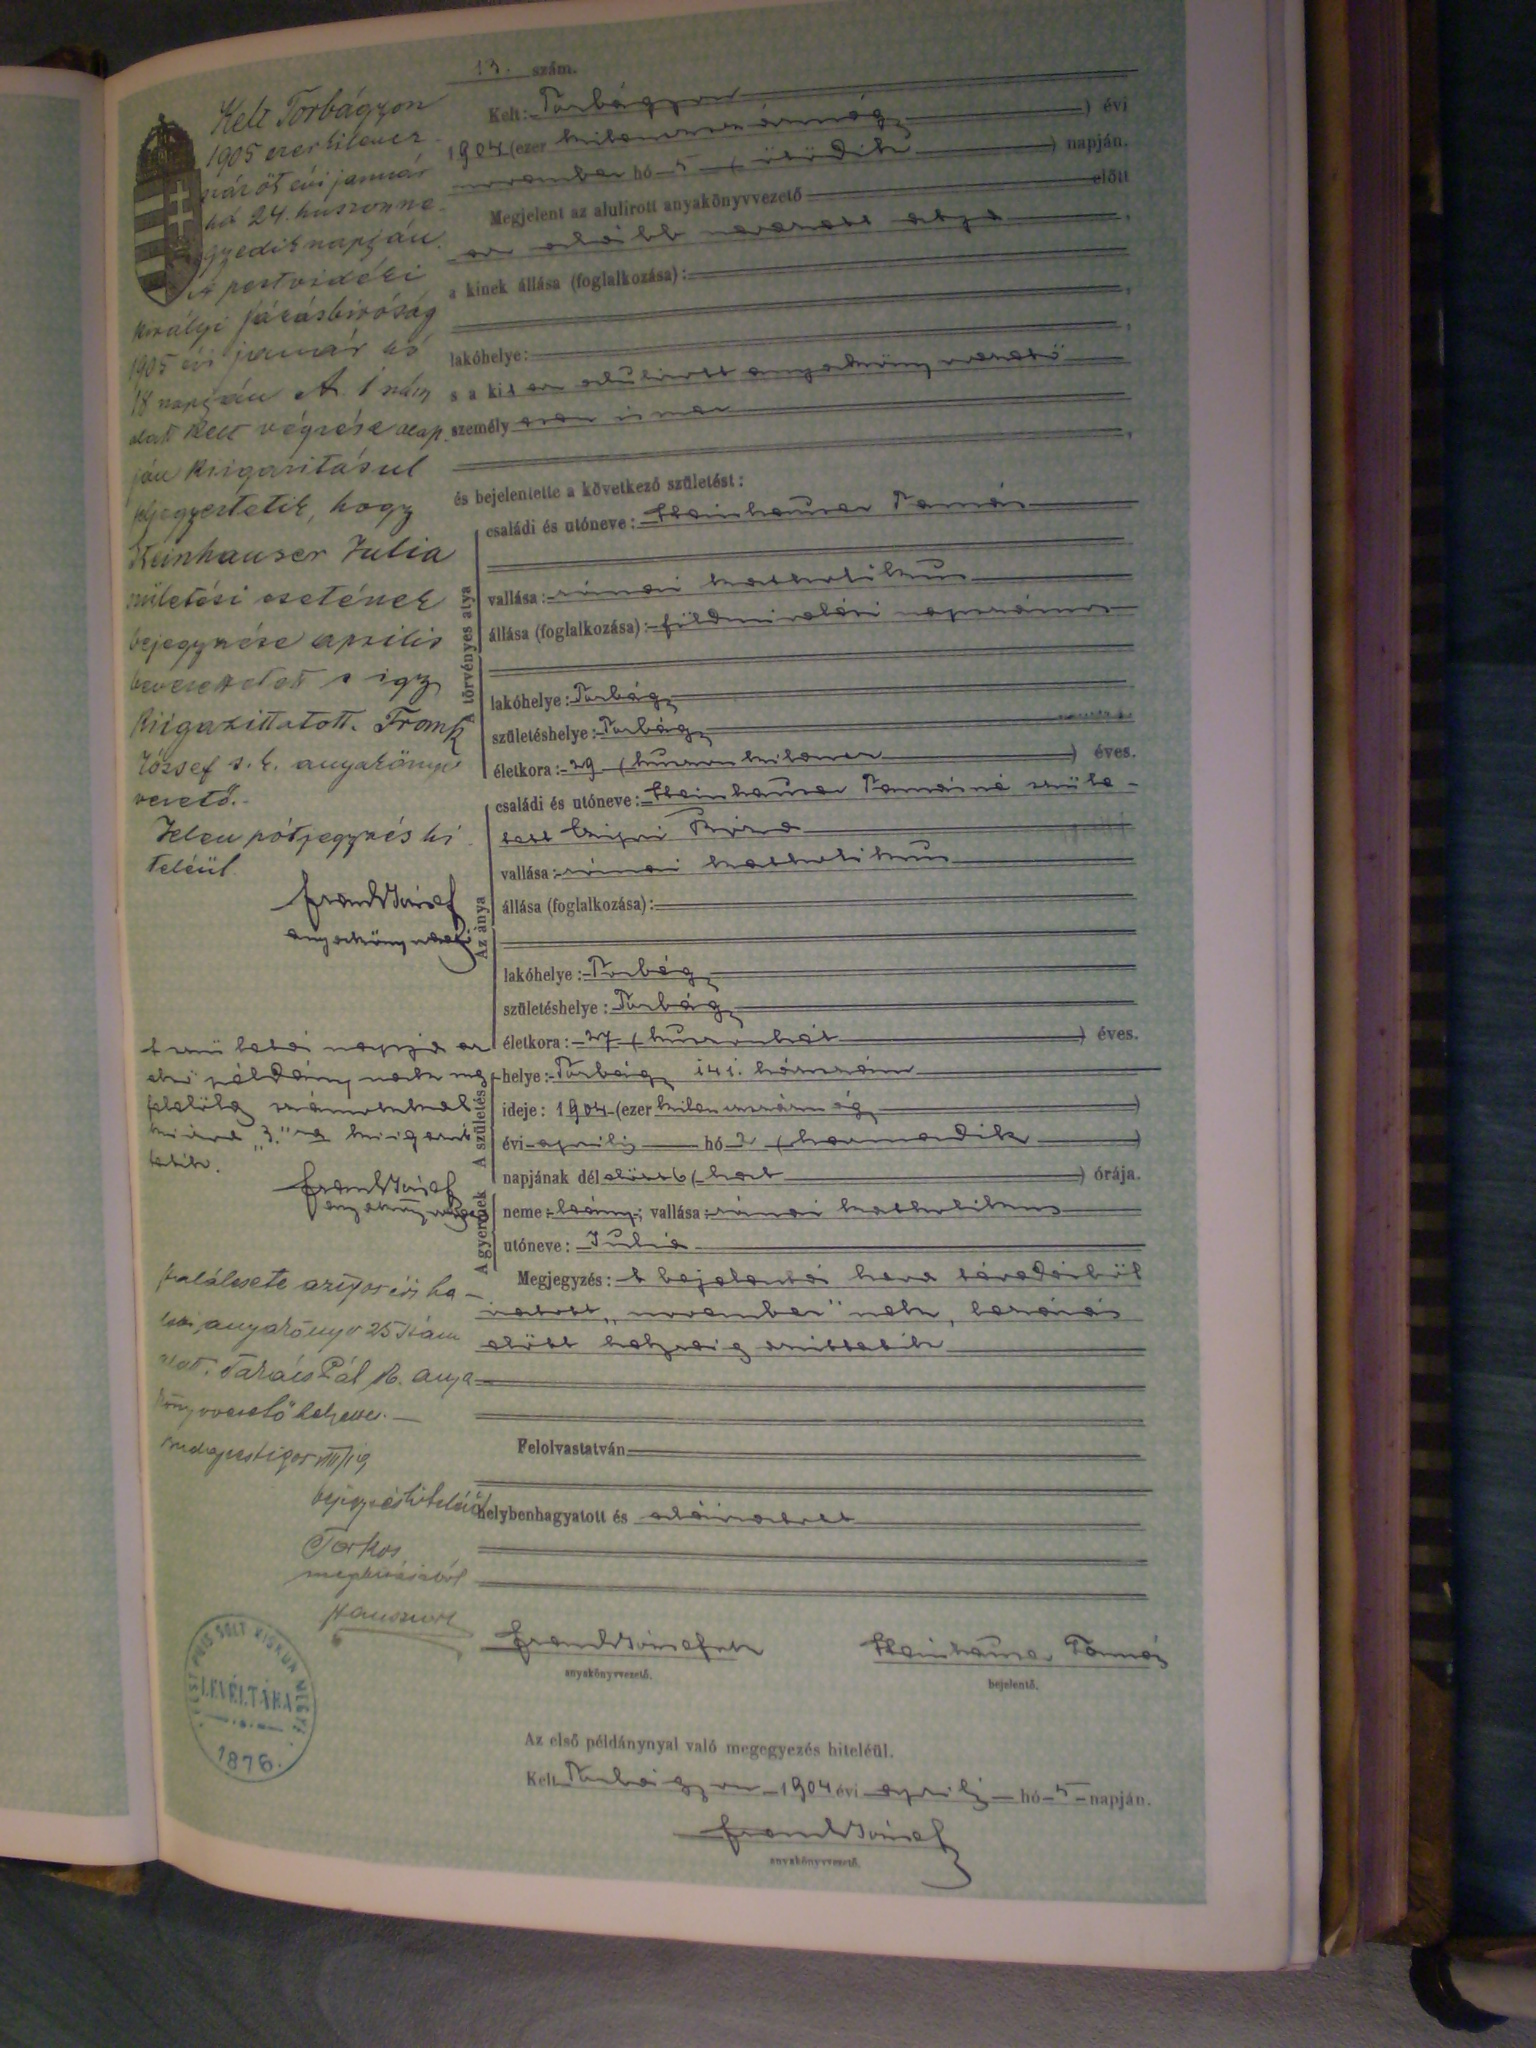 13. szám.
Kelt: Torbágyon
1904 (ezer kilencszáznégy) évi
november hó 5 (ötödik) napján.
Megjelent az alulirott anyakönyvvezető előtt
az alább nevezett atya,
a kinek állása (foglalkozása):
lakóhelye:
s a kit az alulirott anyakönyvvezető
személyesen ismer
és bejelentette a következő születést:
A törvényes atya
családi és utóneve: Steinhauser Tamás
vallása: római katholikus
állása (foglalkozása): földmivelési napszámos
lakóhelye: Torbágy
születéshelye: Torbágy
életkora: 29 (huszonkilencz) éves.
Az anya
családi és utóneve: Steinhauser Tamásné szüle-
tett
vallása: római katholikus
állása (foglalkozása):
lakóhelye: Torbágy
születéshelye: Torbágy
életkora: 27 (huszonhét) éves.
A születés
helye: Torbágy 141. házszám
ideje: 1904 (ezer kilenczszáznégy)
évi április hó 3 (harmadik)
napjának dél előtt 6 (hat) órája.
A gyermek
neme: leány; vallása: római katholikus
utóneve: Julia
Megjegyzés: A bejelentési hava tévedésből
iratott „november"nek, lezárás
előtt helyesbittetik
Felolvastatván
helybenhagyatott és aláiratott
Frank József
anyakönyvvezető.
Steinhauser Tamás
bejelentő.
Az első példánynyal való megegyezés hiteléül.
Kelt Torbágyon 1904 évi április hó 5 napján.
Frank József
anyakönyvvezető.
Kelt Torbágyon
1905 ezerkilencz-
száz öt évi január
hó 24. huszonne-
gyedik napján.
A pestvidéki
királyi járásbiróság
1905 évi január hó
18 napján A. 1 szám
alatt kelt végzése alap-
ján kiigazitásul
feljegyeztetik, hogy
Steinhauser Julia
születési esetének
bejegyzése április
kiigazittatott. Frank
József s. k. anyakönyv
vezető.
Jelen pótjegyzés hi-
teléül
Frank József
anyakönyvvezető
A születési napja az
első példány nak meg
felelőleg számokkal
kiirva „3."ra kiigazit
tatik.
Frank József
anyakönyvvezető
halálesete az 1905 évi ha-
lotti anyakönyv 25 szám
alatt. Takács Pál h. anya
könyvvezető helyettes.
Budapest 1905
bejegyzés hiteléül
Torkos
megbizásából
PEST PILIS SOLT KISKUN MEGYE
LEVÉLTÁRA
1876.